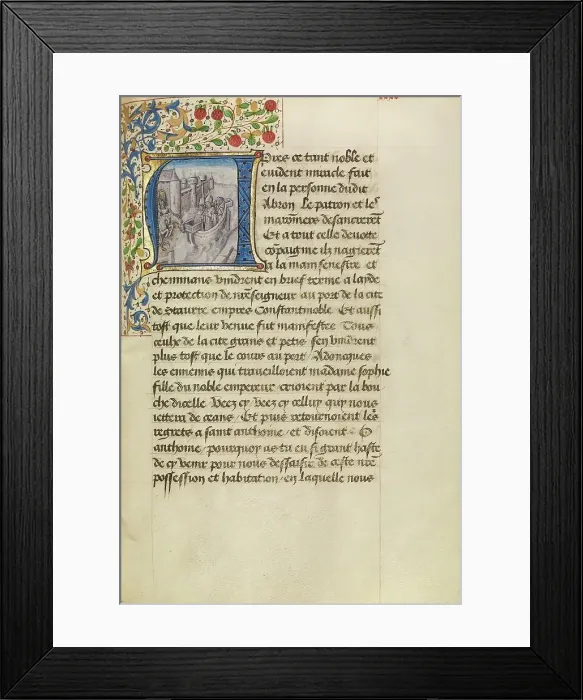 Apres ce tant noble et
euident miracle fait
en la personne dudit
Abron Le patron et les
maronniers desancrerent
Et a tout celle deuote
compaignie ilz nagierent
la mainfenestre et
cheminans vindrent en brief terme a laide
et protection de nreseigneur au port de la cite
de Stauire empres Constantinoble Et aussi
tost que leur venue fut manifestee Tous
ceulx de la cite grans et petis sen vindrent
plus tost que le cours au port Adoncques
les ennemis qui traueilloient madame sophie
fille du noble empereur crioient par la bou
che dicelle Veez cy Veez cy celluy quy nous
iettera de ceans Et puis retournoient les
regrets a saint anthoine et disoient O
anthoine pourquoy as tu eu si grant haste
de cy venir pour nous dessaisir de ceste nre
possession et habitation en laquelle nous